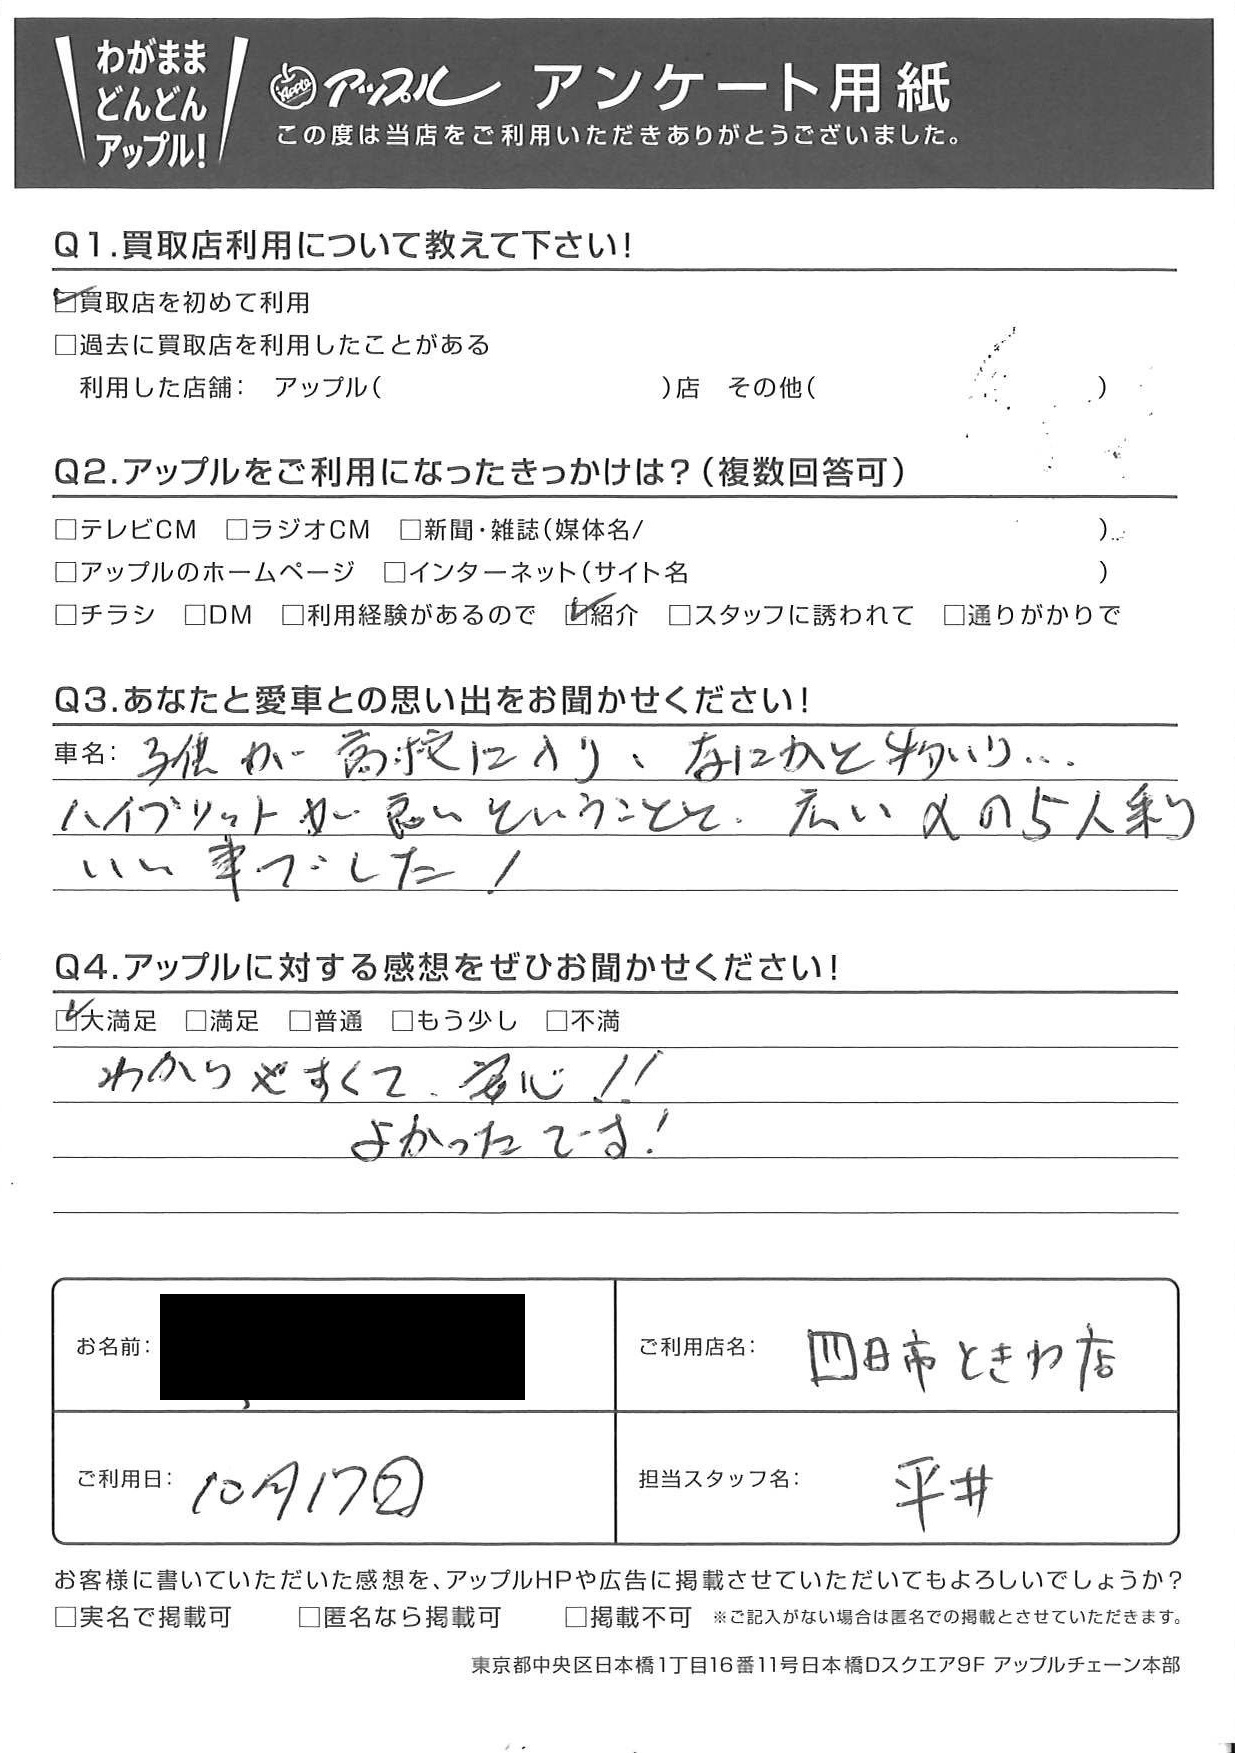 わがまま
どんどん
アップル!
Apple アップル アンケート用紙
この度は当店をご利用いただきありがとうございました。
Q1.買取店利用について教えて下さい!
☑買取店を初めて利用
□過去に買取店を利用したことがある
利用した店舗: アップル( )店 その他( )
Q2.アップルをご利用になったきっかけは?(複数回答可)
□テレビCM □ラジオCM □新聞・雑誌(媒体名/ )
□アップルのホームページ □インターネット(サイト名 )
□チラシ □DM □利用経験があるので ☑紹介 □スタッフに誘われて □通りがかりで
Q3.あなたと愛車との思い出をお聞かせください!
車名: 子供が高校に入り、なにかと物いり...
ハイブリットが良いということと、広いαの5人乗り
いい車でした!
Q4.アップルに対する感想をぜひお聞かせください!
☑大満足 □満足 □普通 □もう少し □不満
わかりやすくて、安心!!
よかったです!
お名前:
ご利用店名: 四日市ときわ店
ご利用日: 10月17日
担当スタッフ名: 平井
お客様に書いていただいた感想を、アップルHPや広告に掲載させていただいてもよろしいでしょうか?
□実名で掲載可 □匿名なら掲載可 □掲載不可 ※ご記入がない場合は匿名での掲載とさせていただきます。
東京都中央区日本橋1丁目16番11号日本橋Dスクエア9F アップルチェーン本部